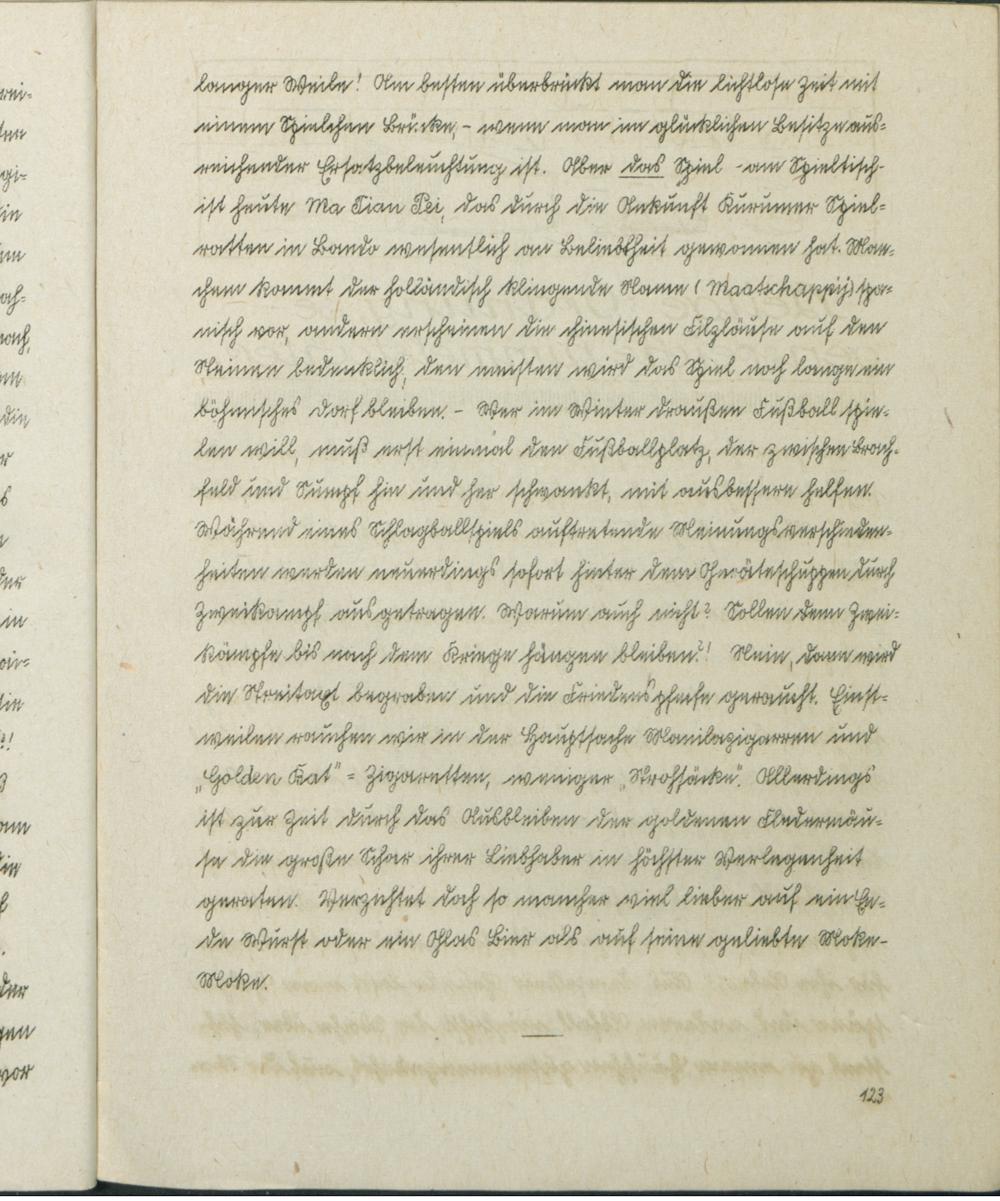 langer Weile! Am besten überbrückt man die lichtlose Zeit mit
einem Spielchen Brücke,- wenn man im glücklichen Besitze aus-
reichender Ersatzbeleuchtung ist. Aber das Spiel - am Spieltisch-
ist heute Ma Tian Pei, das durch die Ankunft Kurumer Spiel-
ratten in Bando wesentlich an Beliebtheit gewonnen hat. Man-
chem kommt der holländisch klingende Name (Maatschappij) spa-
nisch vor, andern erscheinen die chinesischen Filzläuse auf den
Steinen bedenklich; den meisten wird das Spiel noch lange ein
böhmisches Dorf bleiben. - Wer im Winter draußen Fußball spie-
len will, muß erst einmal den Fußballplatz, der zwischen Brach-
feld und Sumpf hin und her schwankt, mit ausbessern helfen.
Während eines Schlagballspiels auftretende Meinungsverschieden-
heiten werden neuerdings sofort hinter dem Geräteschuppen durch
Zweikampf ausgetragen. Warum auch nicht? Sollen denn Zwei-
kämpfe bis nach dem Kriege hängen bleiben?! Nein, dann wird
die Streitaxt begraben und die Friedenspfeife geraucht. Einst-
weilen rauchen wir in der Hauptsache Manilazigarren und
„Golden Kat" = Zigaretten, weniger „Strohsäcke". Allerdings
ist zur Zeit durch das Ausbleiben der goldenen Fledermäu-
se die große Schar ihrer Liebhaber in höchster Verlegenheit
geraten. Verzichtet doch so mancher viel lieber auf ein En-
de Wurst oder ein Glas Bier als auf seine geliebte Moke-
Moke.
123
rei-
ten
gi-
in
ach-
nach,
die
r
s
der
in
die
?!
die
der
gen
vor